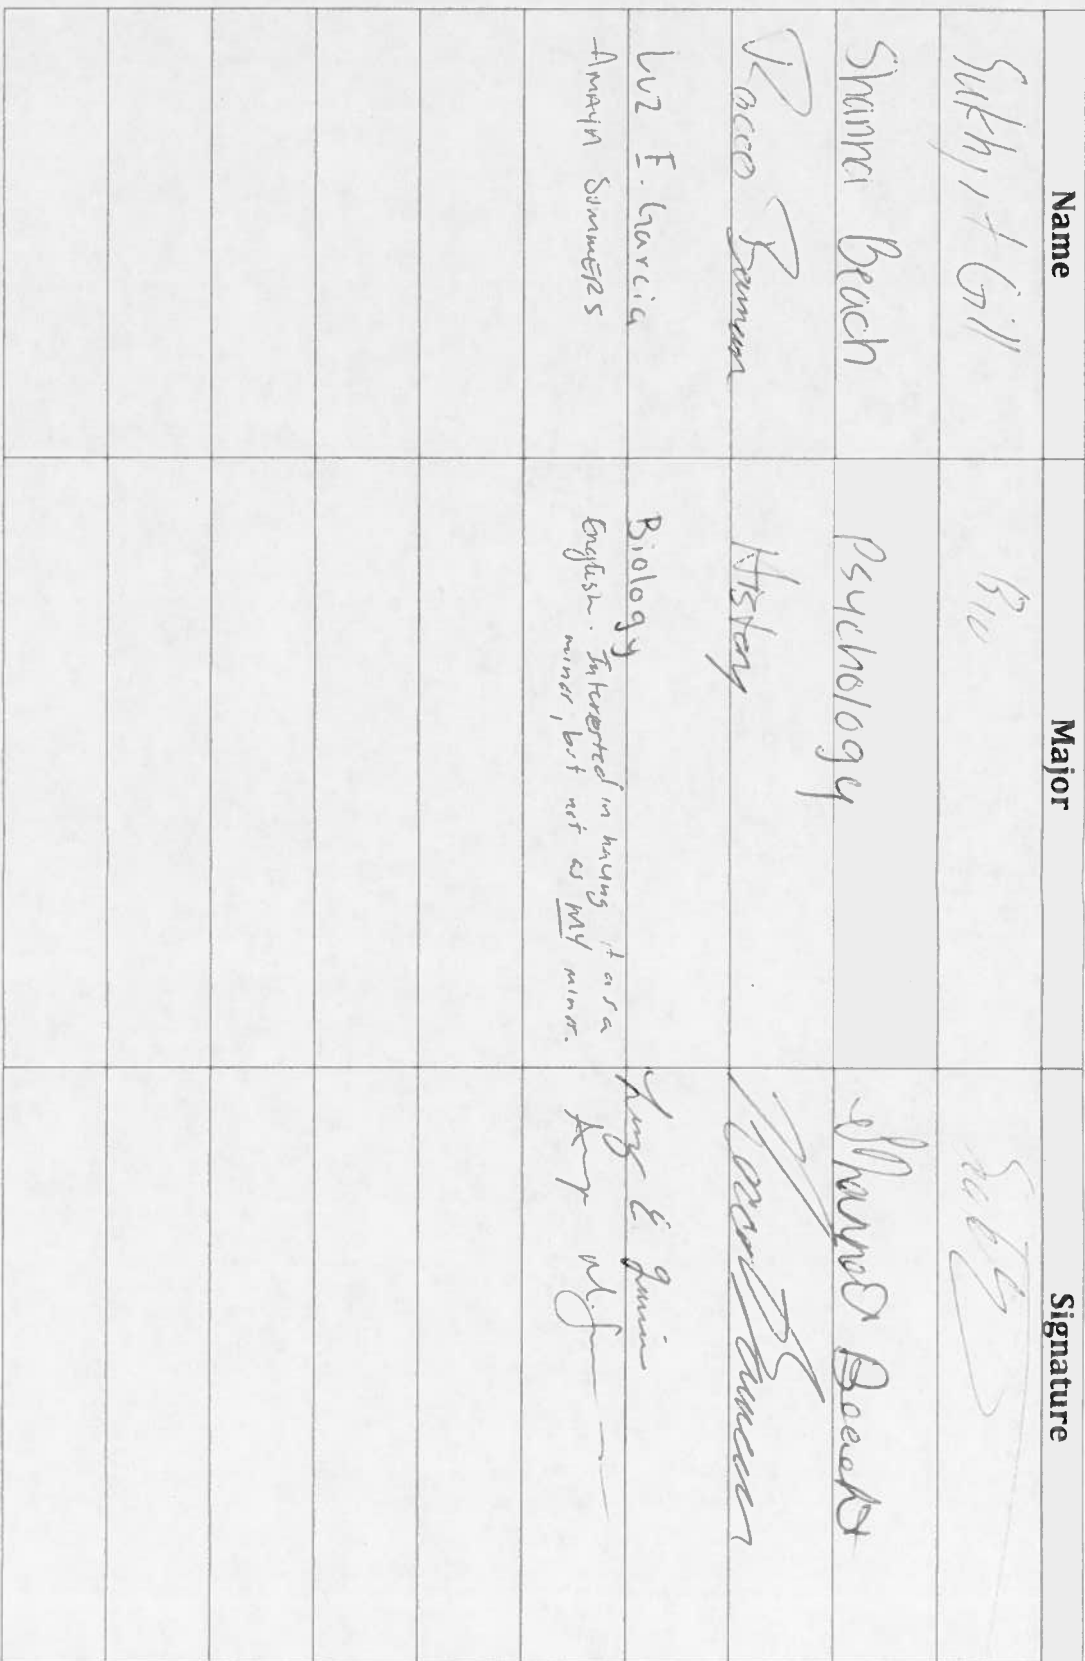 Name Major Signature
Sukhjit Gill Bio
Shanna Beach Psychology Shanna Beach
Rocco History
Luz E. Garcia Biology Luz E Garcia
SUMMERS English. Interested in having it as a
minor, but not as MY minor.